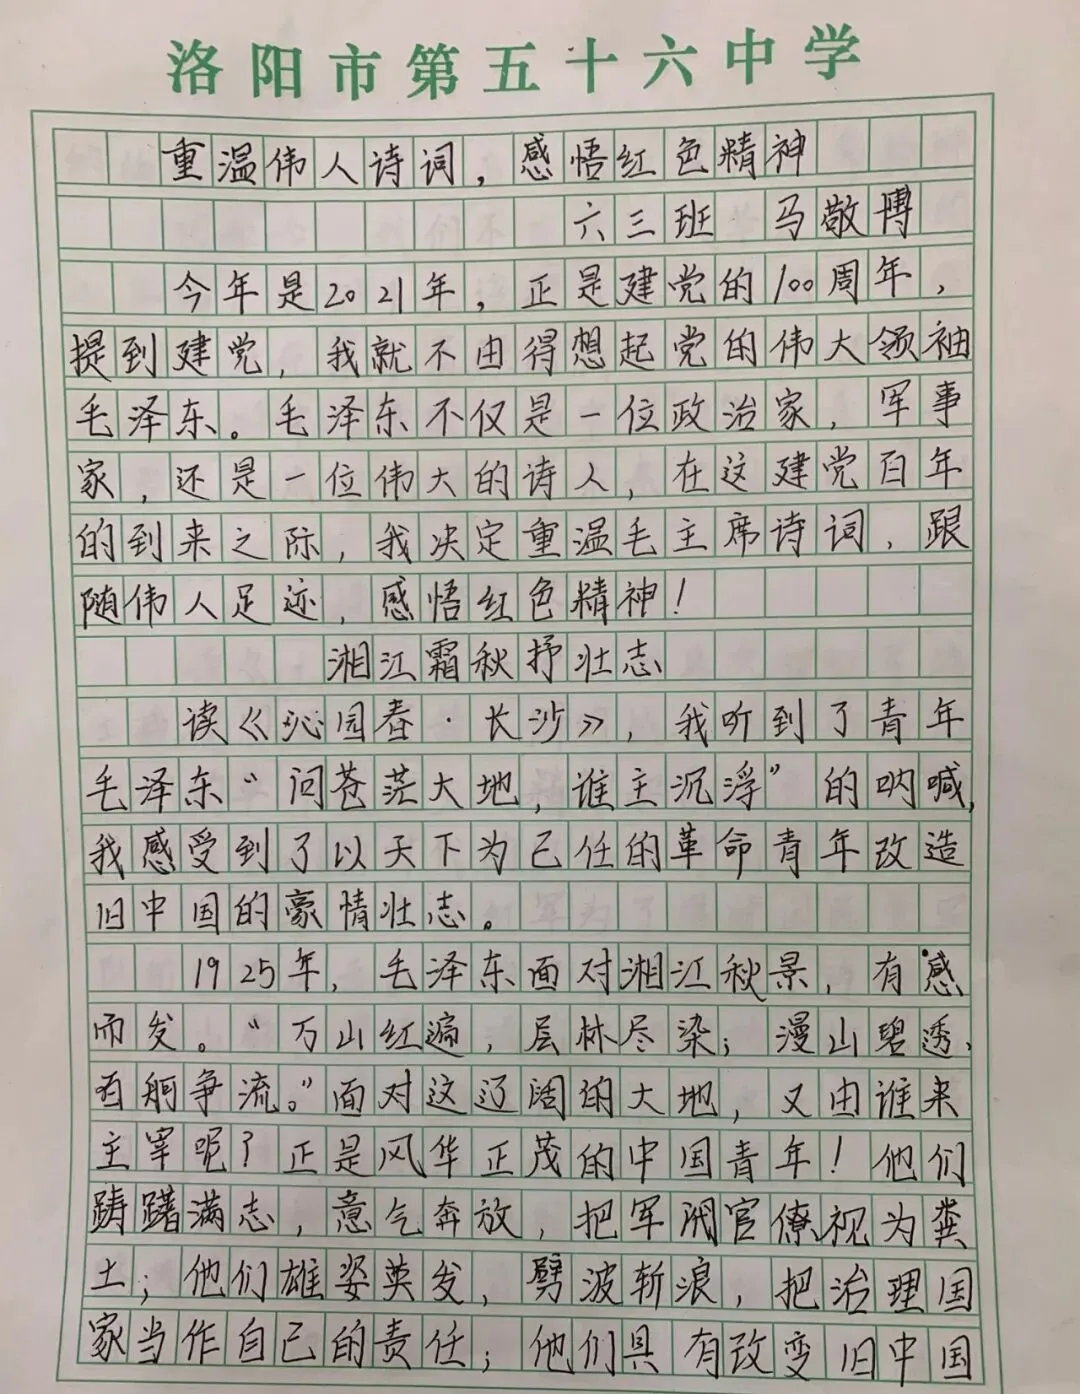 洛阳市第五十六中学
重温伟人诗词，感悟红色精神
六三班 马敬博
今年是2021年，正是建党的100周年，
提到建党，我就不由得想起党的伟大领袖
毛泽东。毛泽东不仅是一位政治家，军事
家，还是一位伟大的诗人，在这建党百年
的到来之际，我决定重温毛主席诗词，跟
随伟人足迹，感悟红色精神！
湘江霜秋抒壮志
读《沁园春·长沙》，我听到了青年
毛泽东“问苍茫大地，谁主沉浮”的呐喊，
我感受到了以天下为己任的革命青年改造
旧中国的豪情壮志。
1925年，毛泽东面对湘江秋景，有感
而发。“万山红遍，层林尽染；漫山碧透，
百舸争流。”面对这辽阔的大地，又由谁来
主宰呢？正是风华正茂的中国青年！他们
踌躇满志，意气奔放，把军阀官僚视为粪
土；他们雄姿英发，劈波斩浪，把治理国
家当作自己的责任；他们具有改变旧中国